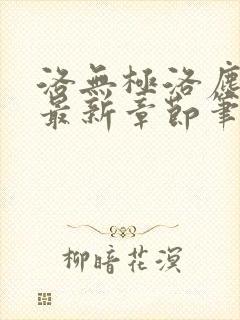 洛無極洛塵
最新章節筆
柳暗花溟